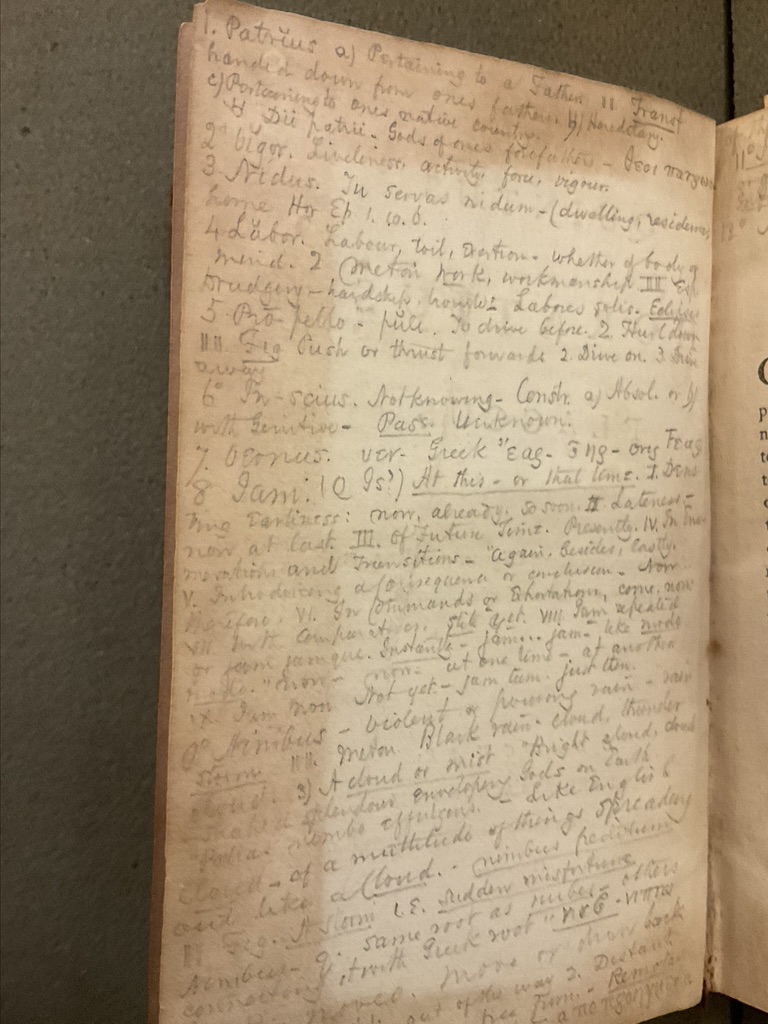 1. Patrius a) Pertaining to a Father II Transf
handed down from ones father. b) Hereditary.
c) Pertaining to ones native country.
Dii patrii - Gods of ones forefather - Θεοι πατρῳοι
2° Vigor. Liveliness, activity, force, vigour.
3. Nidus. Tu servas nidum - (dwelling, residence,
home Hor Ep 1. 10. 6.
4 Labor. Labour, toil, exertion - whether of body or
mind. 2 Meton Work, workmanship III Esp
Drudgery - hardship, trouble Labores solis. Eclipse
5 - Pro-pello - puli. To drive before. 2. Hurl down
III. Fig Push or thrust forwards 2. Drive on. 3. Drive
away
6° In-scius. Not knowing - Constr. a) Absol. or b)
with Genitive - Pass. Unknown.
7. Vernus. ver - Greek Ἔαρ - Ἦρ - orig
8 Jam: (Q Is?) At this - or that time. I. Deno
ting Earliness: now, already, so soon. II Lateness -
now at last. III. Of Future Time. Presently. IV. In
and Transitions - "Again, besides, lastly.
V. Introducing a consequence or conclusion - Now
VI. In Commands or Exhortation, come, now
VII With comparatives. still yet. VIII Jam repeated
or jam jamque. Instantly - jam... jam - like modo
modo. "now - now - at one time - at another
IX Jam non Not yet - jam tum. just then.
9° Nimbus - violent or pouring rain - rain
storm II. Meton Black rain-cloud, thunder
cloud. 3) A cloud or mist "Bright cloud, cloud
shaped splendour enveloping Gods on Earth
nimbo effulgens. - Like English
Cloud - of a multitude of things spreading
out like a Cloud. - nimbus peditum
II Fig. A storm i.e. sudden misfortune
Nimbus - q. same root as nubes - others
connecting it with Greek root
Move or draw back
out of the way 2. Distant
free from. - Remote